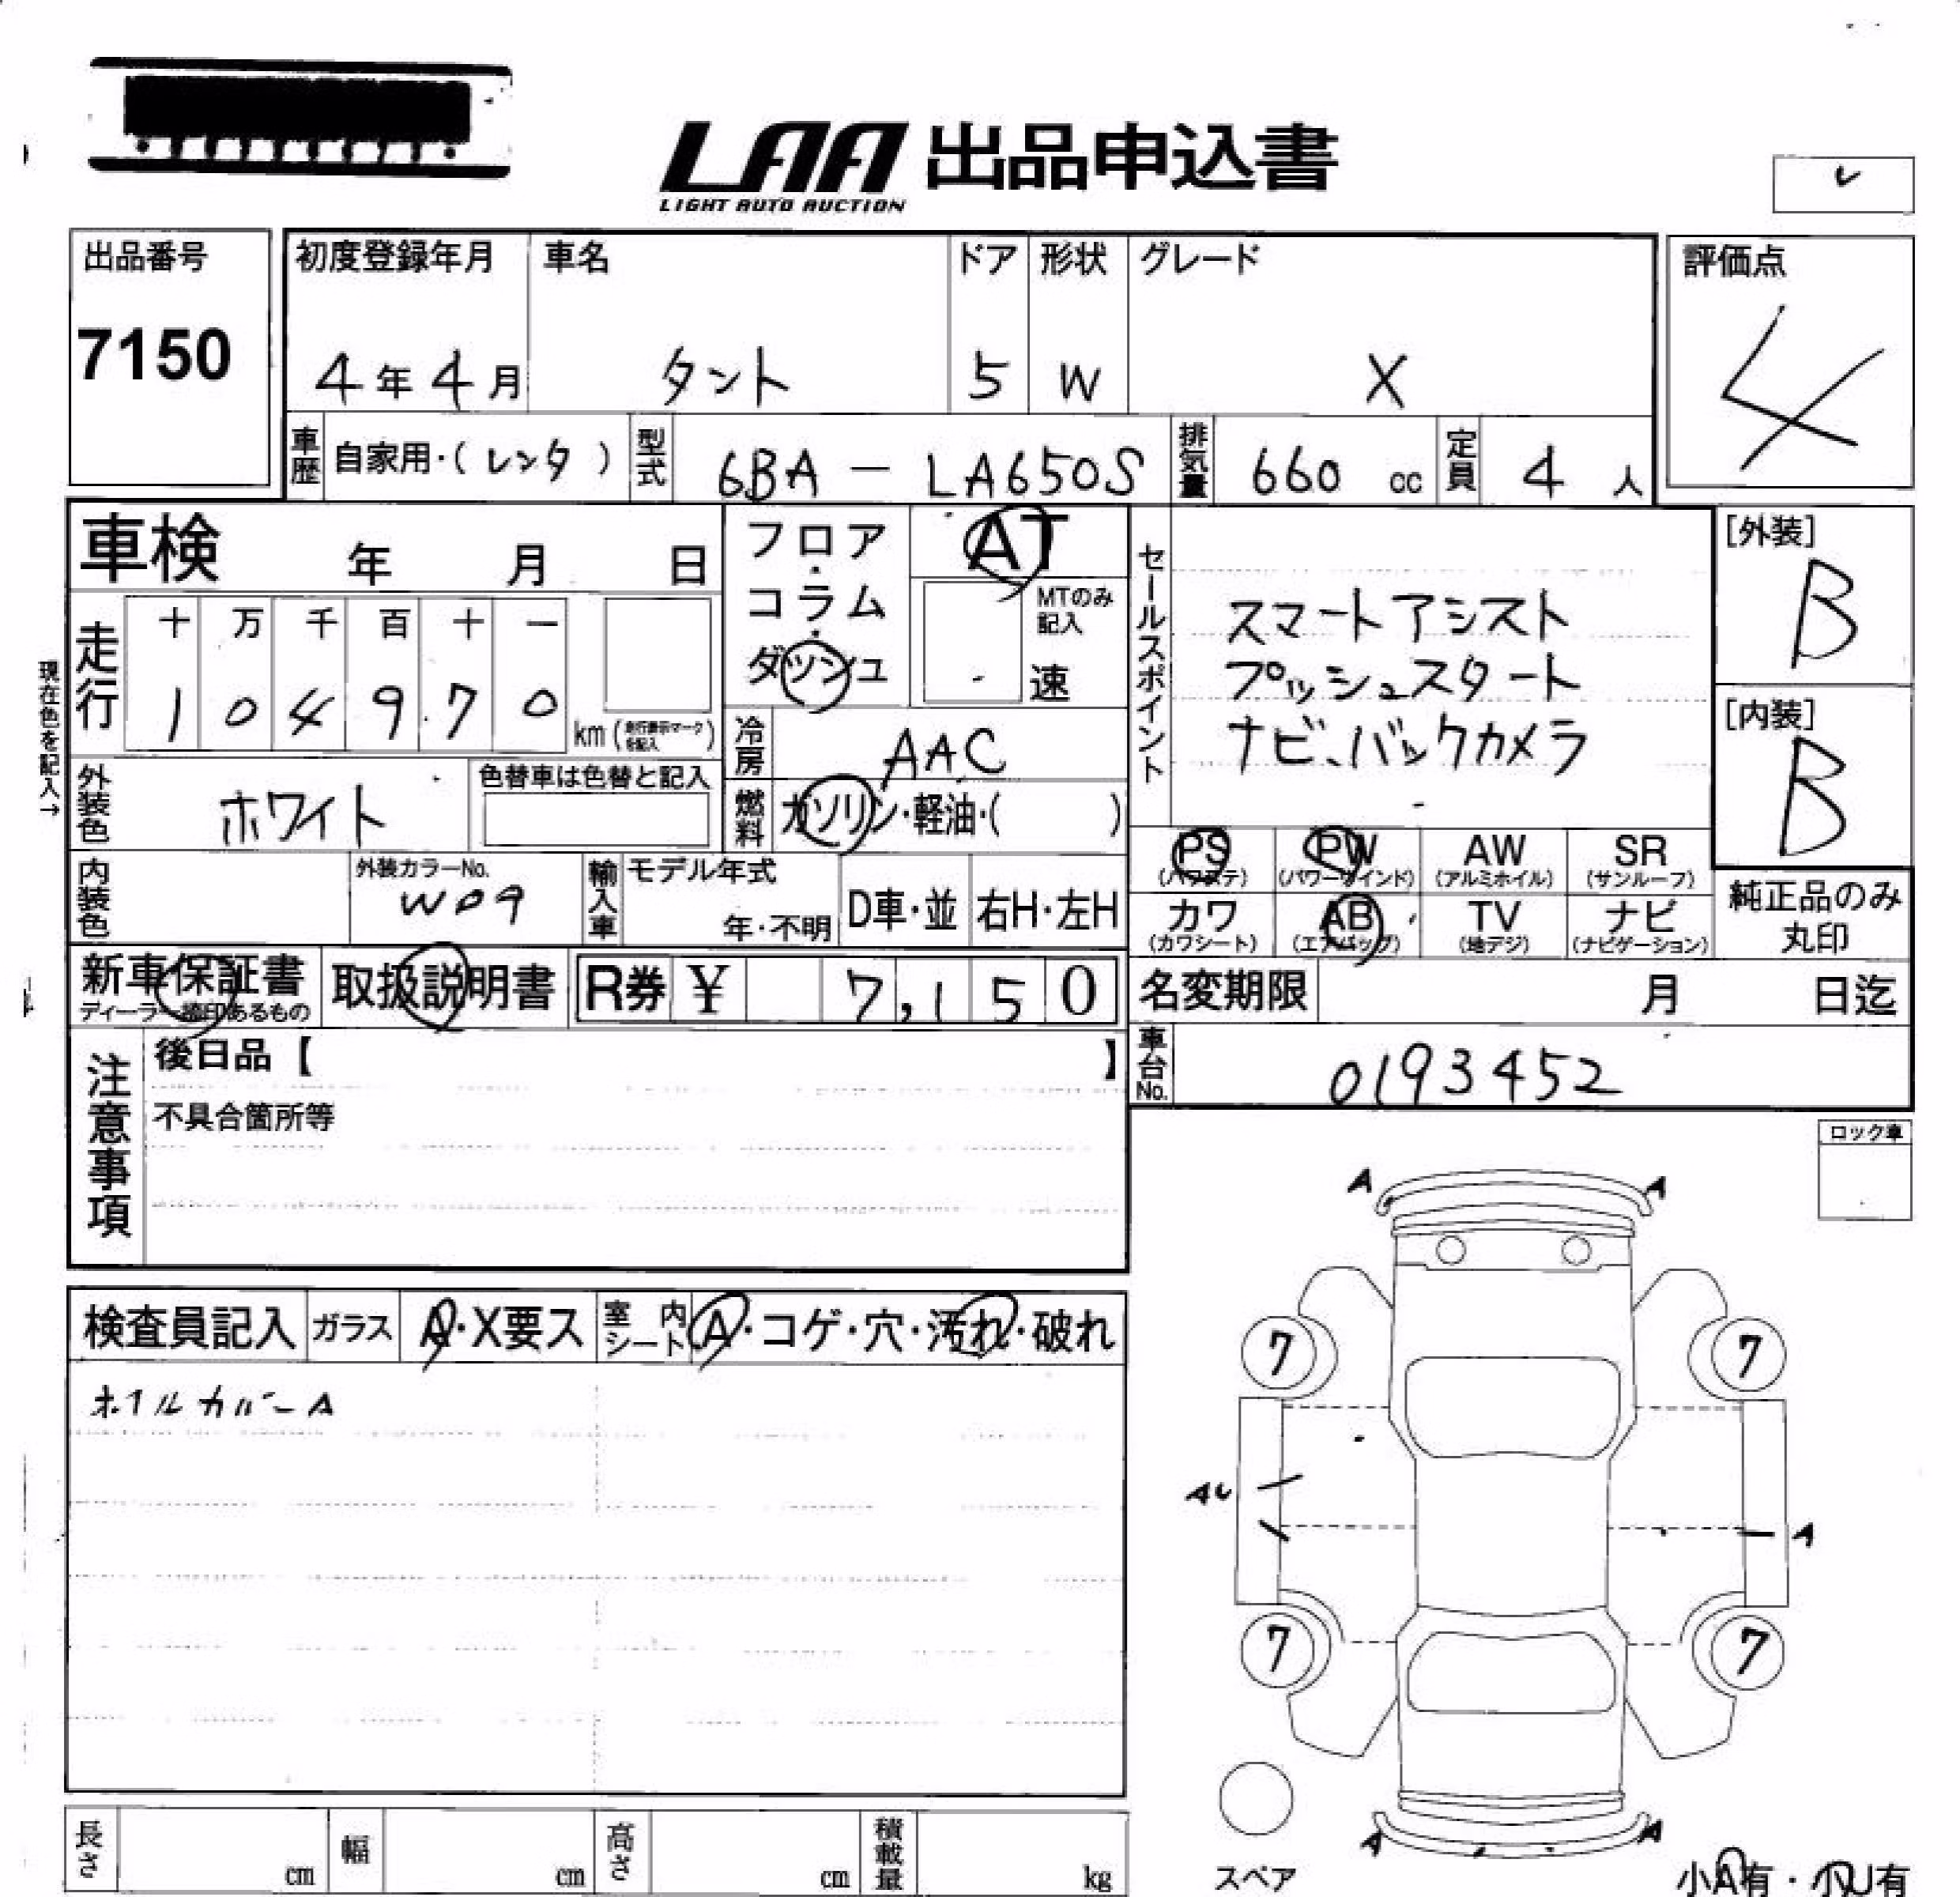 LAA 出品申込書
LIGHT AUTO AUCTION
レ
出品番号
7150
初度登録年月
4年4月
車名
タント
ドア
5
形状
W
グレード
X
評価点
4
車歴
自家用・(レンタ)
型式
6BA - LA650S
排気量
660 cc
定員
4 人
車検 年 月 日
現在色を記入→
走行
十 万 千 百 十 一
1 0 4 9 7 0
km(走行表示マークを記入)
フロア
・
コラム
・
ダッシュ
AT
MTのみ
記入
速
冷房
AAC
燃料
ガソリン・軽油・( )
セールスポイント
スマートアシスト
プッシュスタート
ナビ、バックカメラ
[外装]
B
[内装]
B
外装色
ホワイト
色替車は色替と記入
内装色
外装カラーNo.
W09
輸入車
モデル年式
年・不明
D車・並
右H・左H
PS
(パワステ)
PW
(パワーウインド)
AW
(アルミホイル)
SR
(サンルーフ)
カワ
(カワシート)
AB
(エアバッグ)
TV
(地デジ)
ナビ
(ナビゲーション)
純正品のみ
丸印
新車保証書
ディーラー捺印あるもの
取扱説明書
R券 ¥ 7,150
名変期限 月 日迄
車台No.
0193452
注意事項
後日品【 】
不具合箇所等
ロック車
検査員記入
ガラス
A・X要ス
室内
シート
A・コゲ・穴・汚れ・破れ
ホイルカバーA
A A
7 7
AU
A
7 7
A A
スペア
小A有・小U有
長さ cm
幅 cm
高さ cm
積載量 kg